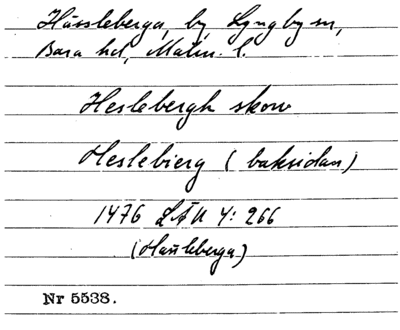 Hässleberga, by, Lyngby sn,
Bara hd, Malm. l.
Heslebergh skow
Heslebierg (baksidan)
1476 LÄU 4: 266
(Hässleberga)
Nr 5538.